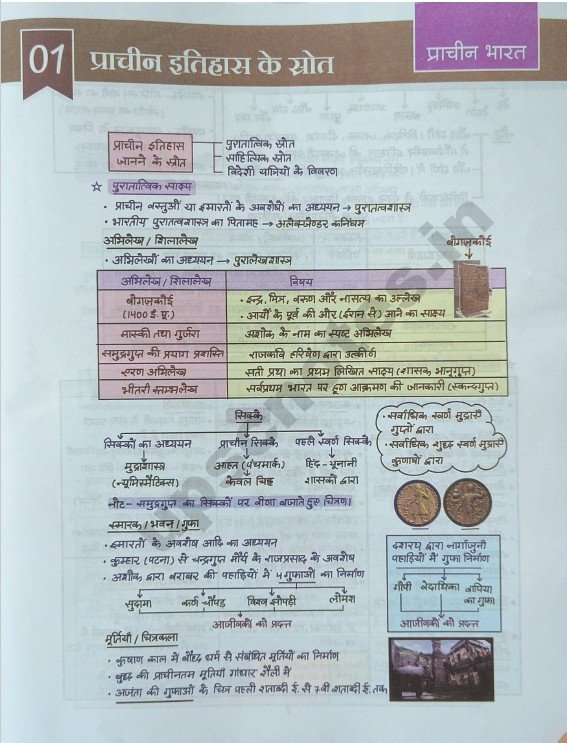 01
प्राचीन इतिहास के स्रोत
प्राचीन भारत
प्राचीन इतिहास
जानने के स्रोत
पुरातात्विक स्रोत
साहित्यिक स्रोत
विदेशी यात्रियों के विवरण
☆ पुरातात्विक साक्ष्य
• प्राचीन वस्तुओं या इमारतों के अवशेषों का अध्ययन → पुरातत्वशास्त्र
• भारतीय पुरातत्वशास्त्र का पितामह → अलेक्जेण्डर कनिंघम
अभिलेख / शिलालेख
• अभिलेखों का अध्ययन → पुरालेखशास्त्र
बोगजकोई
अभिलेख / शिलालेख
विषय
बोगजकोई
(1400 ई. पू.)
• इन्द्र, मित्र, वरुण और नासत्य का उल्लेख
• आर्यों के पूर्व की ओर (ईरान से) आने का साक्ष्य
मास्की तथा गुर्जरा
अशोक के नाम का स्पष्ट अभिलेख
समुद्रगुप्त की प्रयाग प्रशस्ति
राजकवि हरिषेण द्वारा उत्कीर्ण
एरण अभिलेख
सती प्रथा का प्रथम लिखित साक्ष्य (शासक भानुगुप्त)
भीतरी स्तम्भलेख
सर्वप्रथम भारत पर हूण आक्रमण की जानकारी (स्कन्दगुप्त)
सिक्के
सिक्कों का अध्ययन
प्राचीन सिक्के
पहले स्वर्ण सिक्के
मुद्राशास्त्र
(न्यूमिस्मेटिक्स)
आहत (पंचमार्क)
केवल चिह्न
हिन्द-यूनानी
शासकों द्वारा
• सर्वाधिक स्वर्ण मुद्राएँ
गुप्तों द्वारा
• सर्वाधिक शुद्ध स्वर्ण मुद्राएँ
कुषाणों द्वारा
नोट- समुद्रगुप्त का सिक्कों पर वीणा बजाते हुए चित्रण।
स्मारक / भवन / गुफा
• इमारतों के अवशेष आदि का अध्ययन
• कुम्हार (पटना) से चन्द्रगुप्त मौर्य के राजप्रसाद के अवशेष
• अशोक द्वारा बराबर की पहाड़ियों में 4 गुफाओं का निर्माण
सुदामा
कर्ण चौपड़
विश्व झोपड़ी
लोमश
आजीवकों को प्रदत्त
दशरथ द्वारा नागार्जुनी
पहाड़ियों में गुफा निर्माण
गोपी
वेदाथिका
वापिया
का गुफा
आजीवकों को प्रदत्त
मूर्तियाँ / चित्रकला
• कुषाण काल में बौद्ध धर्म से संबंधित मूर्तियों का निर्माण
• बुद्ध की प्राचीनतम मूर्तियाँ गांधार शैली में
• अजंता की गुफाओं के चित्र पहली शताब्दी ई. से 7वीं शताब्दी ई. तक